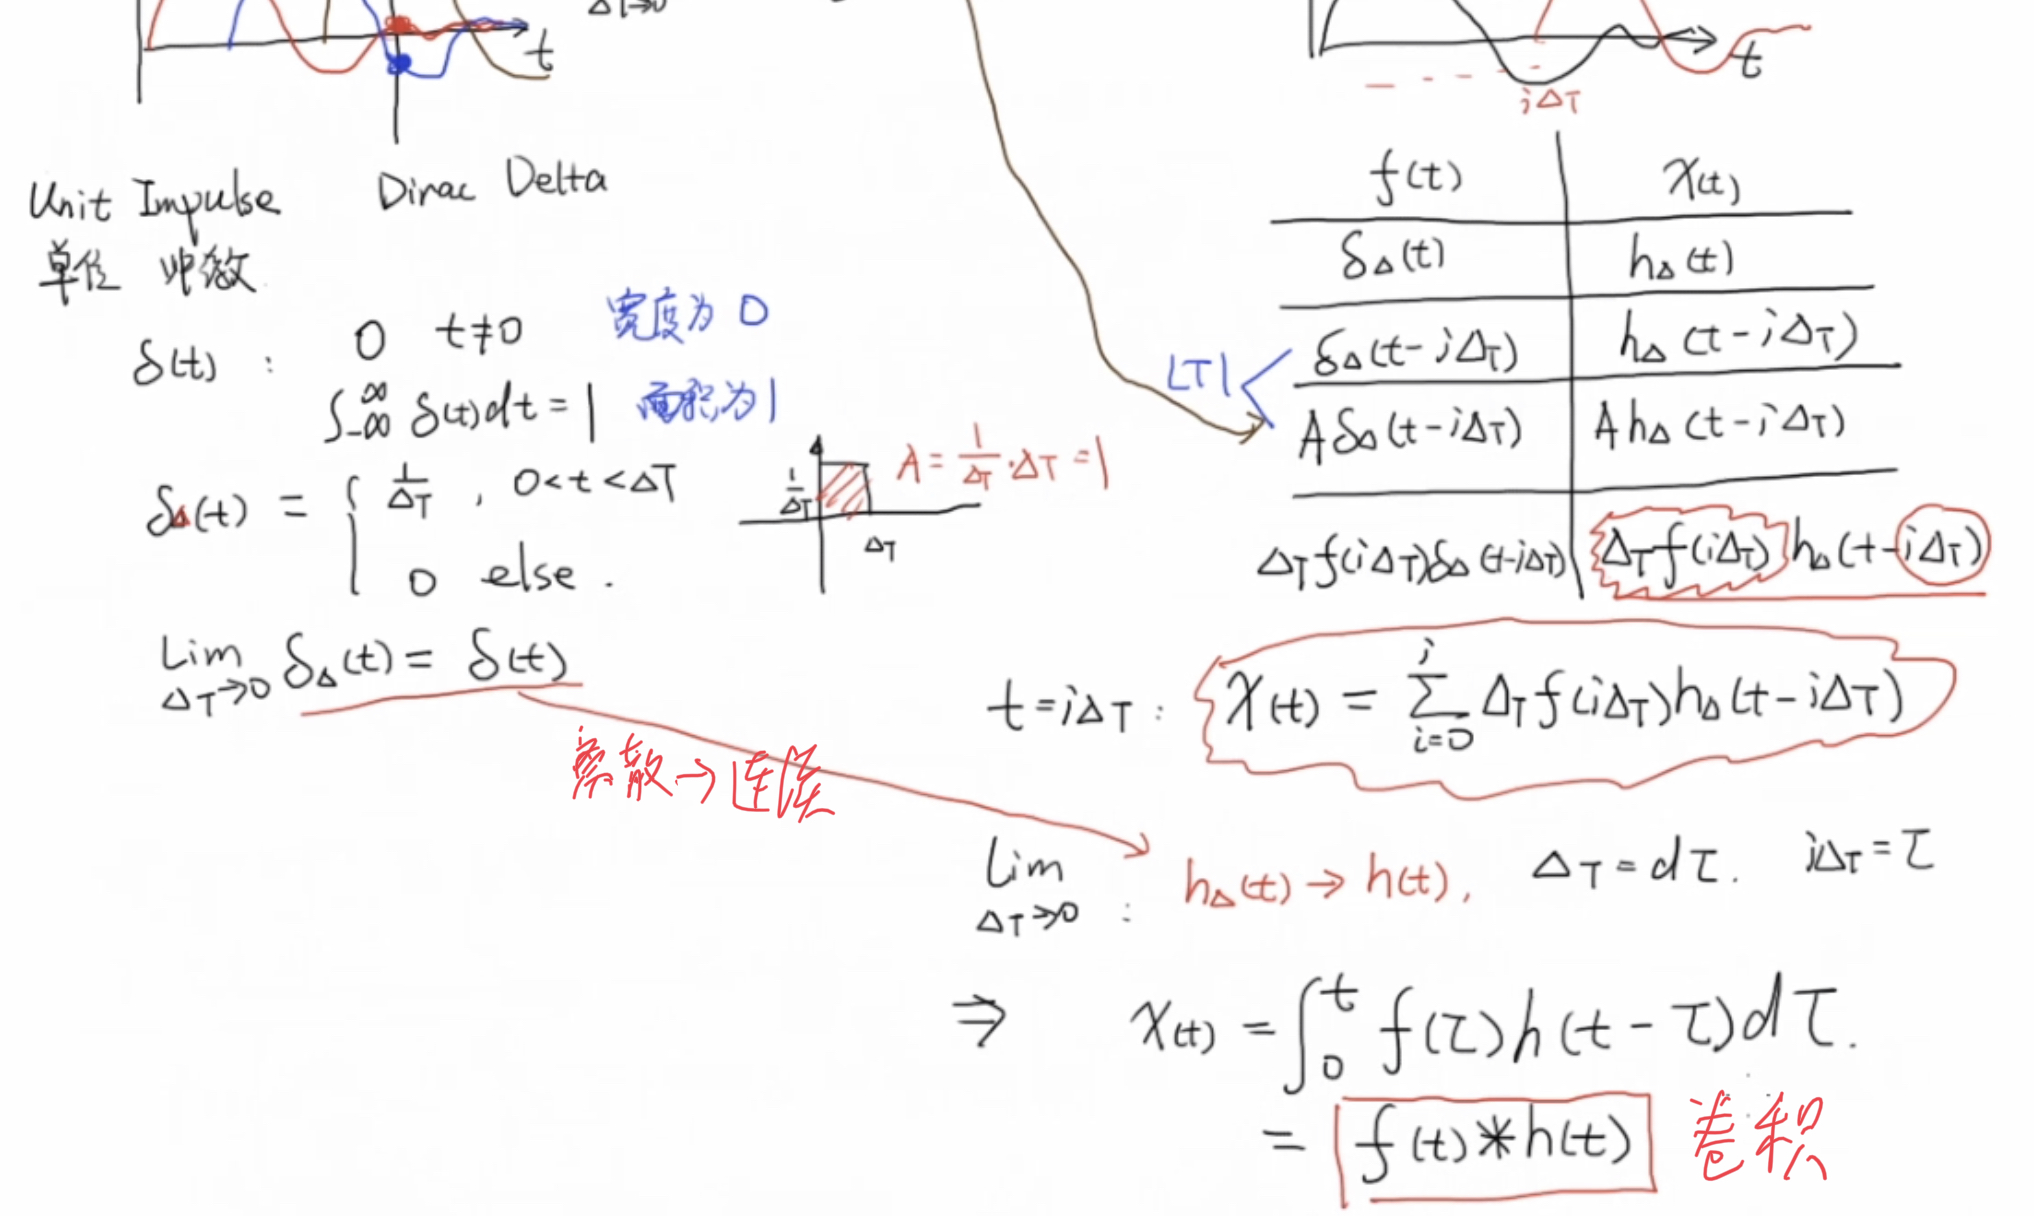 t
ΔT→0
t
iΔT
Unit Impulse Dirac Delta
单位 冲激
δ(t) : 0 t≠0 宽度为 0
∫_{-∞}^{∞} δ(t)dt = 1 面积为1
δ_Δ(t) = { 1/ΔT , 0<t<ΔT
0 else.
1/ΔT
ΔT
A = 1/ΔT · ΔT = 1
Lim_{ΔT→0} δ_Δ(t) = δ(t)
离散→连续
f(t) x(t)
δ_Δ(t) h_Δ(t)
LTI
δ_Δ(t-iΔT) h_Δ(t-iΔT)
Aδ_Δ(t-iΔT) Ah_Δ(t-iΔT)
ΔT f(iΔT)δ_Δ(t-iΔT) ΔT f(iΔT) h_Δ(t-iΔT)
t=iΔT : x(t) = Σ_{i=0}^{i} ΔT f(iΔT)h_Δ(t-iΔT)
Lim_{ΔT→0} : h_Δ(t) → h(t), ΔT = dτ. iΔT = τ
⇒ x(t) = ∫_0^t f(τ)h(t-τ)dτ.
= f(t)*h(t) 卷积